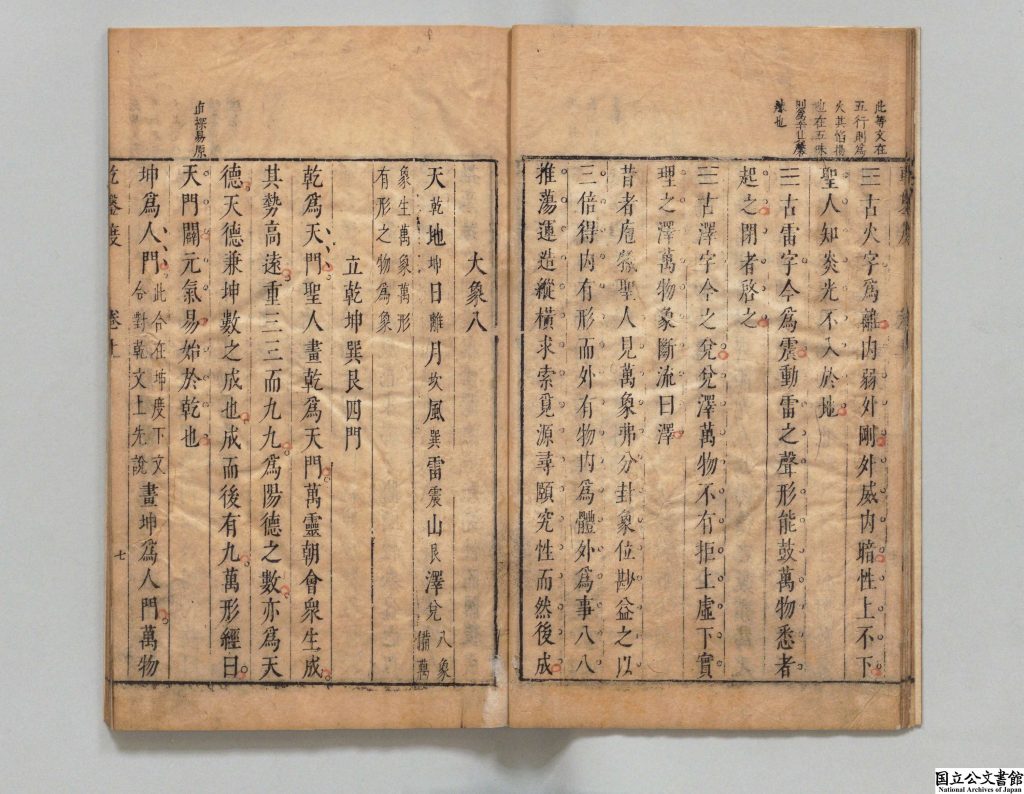 此等文在
五行則為
火其焰揚
也在五味
則為辛其
☲古火字為離内弱外剛外威内暗性上不下
聖人知炎光不入於地
☳古雷字今為震動雷之聲形能鼓萬物悉者
起之閉者啓之
☱古澤字今之兌兌澤萬物不有拒上虛下實
理之澤萬物象斷流曰澤
昔者庖犧聖人見萬象弗分卦象位尠益之以
三倍得内有形而外有物内為體外為事八八
推蕩運造縱橫求索覓源尋頤究性而然後成
大象八
天乾地坤日離月坎風巽雷震山艮澤兌八象備萬
象生萬象萬形
有形之物為象
立乾坤巽艮四門
乾為天門聖人畫乾為天門萬靈朝會衆生成
其勢高遠重三三而九九為陽德之數亦為天
德天德兼坤數之成也成而後有九萬形經曰
天門闢元氣易始於乾也
直探易原
坤為人門此合在坤度下文合對乾文上先說畫坤為人門萬物
乾鑿度
七
国立公文書館
National Archives of Japan